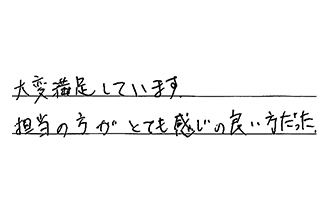 大変満足しています
担当の方がとても感じの良い方だった.